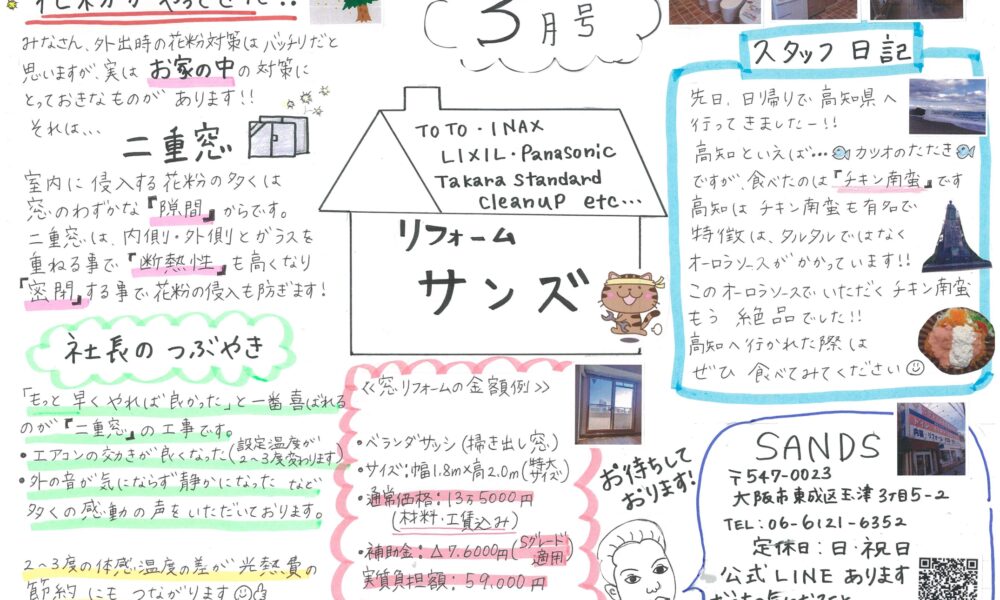 花粉がやってきた!!
みなさん、外出時の花粉対策はバッチリだと
思いますが、実は お家の中の対策に
とっておきなものが あります!!
それは、、、
二重窓
室内に侵入する花粉の多くは
窓のわずかな『隙間』からです。
二重窓は、内側・外側とガラスを
重ねる事で『断熱性』も高くなり
『密閉』する事で花粉の侵入も防ぎます!
社長の つぶやき
「もっと早くやれば良かった」と一番喜ばれる
のが『二重窓』の工事です。
・エアコンの効きが良くなった(設定温度が
2〜3度変わります)
・外の音が気にならず静かになった など
多くの感動の声をいただいております。
2〜3度の体感温度の差が光熱費の
節約 にも つながります
3月号
TOTO・INAX
LIXIL・Panasonic
Takara standard
cleanup etc...
リフォーム
サンズ
≪窓リフォームの金額例≫
・ベランダサッシ(掃き出し窓)
・サイズ:幅1.8m×高2.0m(特大
サイズ)
・通常価格:13万5000円
(材料・工賃込み)
・補助金:△7.6000円(Sグレード
適用)
実質負担額:59,000円
お待ちして
おります!
スタッフ日記
先日、日帰りで高知県へ
行ってきましたー!!
高知といえば…カツオのたたき
ですが、食べたのは『チキン南蛮』です
高知はチキン南蛮も有名で
特徴は、タルタルではなく
オーロラソースがかかっています!!
このオーロラソースでいただくチキン南蛮
もう 絶品でした!!
高知へ行かれた際は
ぜひ 食べてみてください
SANDS
〒547-0023
大阪市東成区玉津3丁目5-2
TEL:06-6121-6352
定休日:日・祝日
公式LINEあります